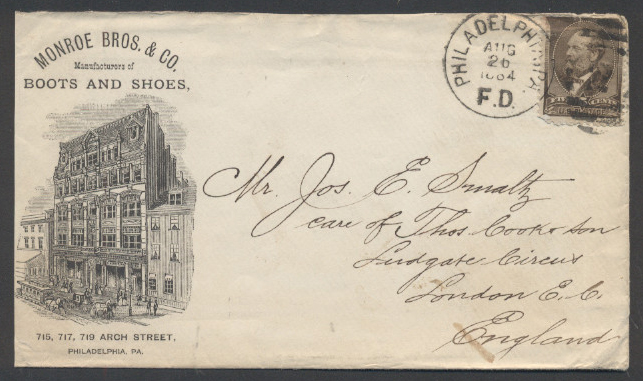 MONROE BROS. & CO.
Manufacturers of
BOOTS AND SHOES,
715, 717, 719 ARCH STREET,
PHILADELPHIA, PA.
PHILADELPHIA PA.
AUG
26
1884
F.D.
Mr. Jos. E. Smaltz
care of Thos. Cook & son
Ludgate Circus
London E. C.
England